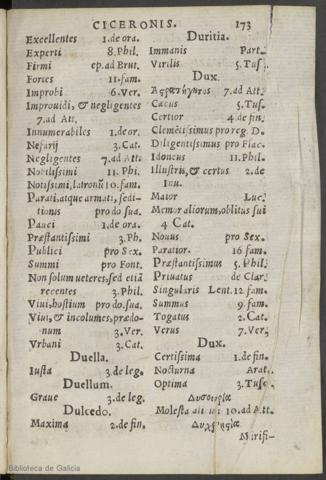 CICERONIS. 173
Excellentes 1.de ora.
Experti 8.Phil.
Firmi ep.ad Brut.
Fortes 11.fam.
Improbi 6.Ver.
Improuidi, & negligentes
7.ad Att.
Innumerabiles 1.de or.
Nefarij 3.Cat.
Negligentes 7.ad Att.
Nobilissimi 11. Phi.
Notissimi, latronũ 10.fam.
Parati, atque armati, sedi-
tionus pro do.sua.
Pauci 1.de ora.
Præstantissimi 3.Ph.
Publici pro Sex.
Summi pro Font.
Non solum ueteres, sed etiã
recentes 3.Phil.
Viui, hostium pro do.sua.
Viui, & incolumes, prædo-
num 3.Ver.
Vrbani 3.Cat.
Duella.
Iusta 3.de leg.
Duellum.
Graue 3.de leg.
Dulcedo.
Maxima 2.de fin.
Duritia.
Immanis Part.
Virilis 5.Tus.
Dux.
Ἀϛρατήγητος 7.ad Att.
Cæcus 5.Tus.
Certior 4.de fin.
Clemẽtissimus pro reg. D.
Diligentissimus pro Flac.
Idoneus 11.Phil.
Illustris, & certus 2.de
Inu.
Maior Luc.
Memoraliorum, oblitus sui
4 Cat.
Nouus pro Sex.
Paratior 16 fam.
Præstantissimus 5.Phil.
Priuatus de Clar.
Singularis Lent.12.fam.
Summus 9.fam.
Togatus 2.Cat.
Verus 7.Ver.
Dux.
Certissima 1.de fin.
Nocturna Arat.
Optima 3.Tus.
Molesta 10.ad Att.
Mirifi-
Biblioteca de Galicia